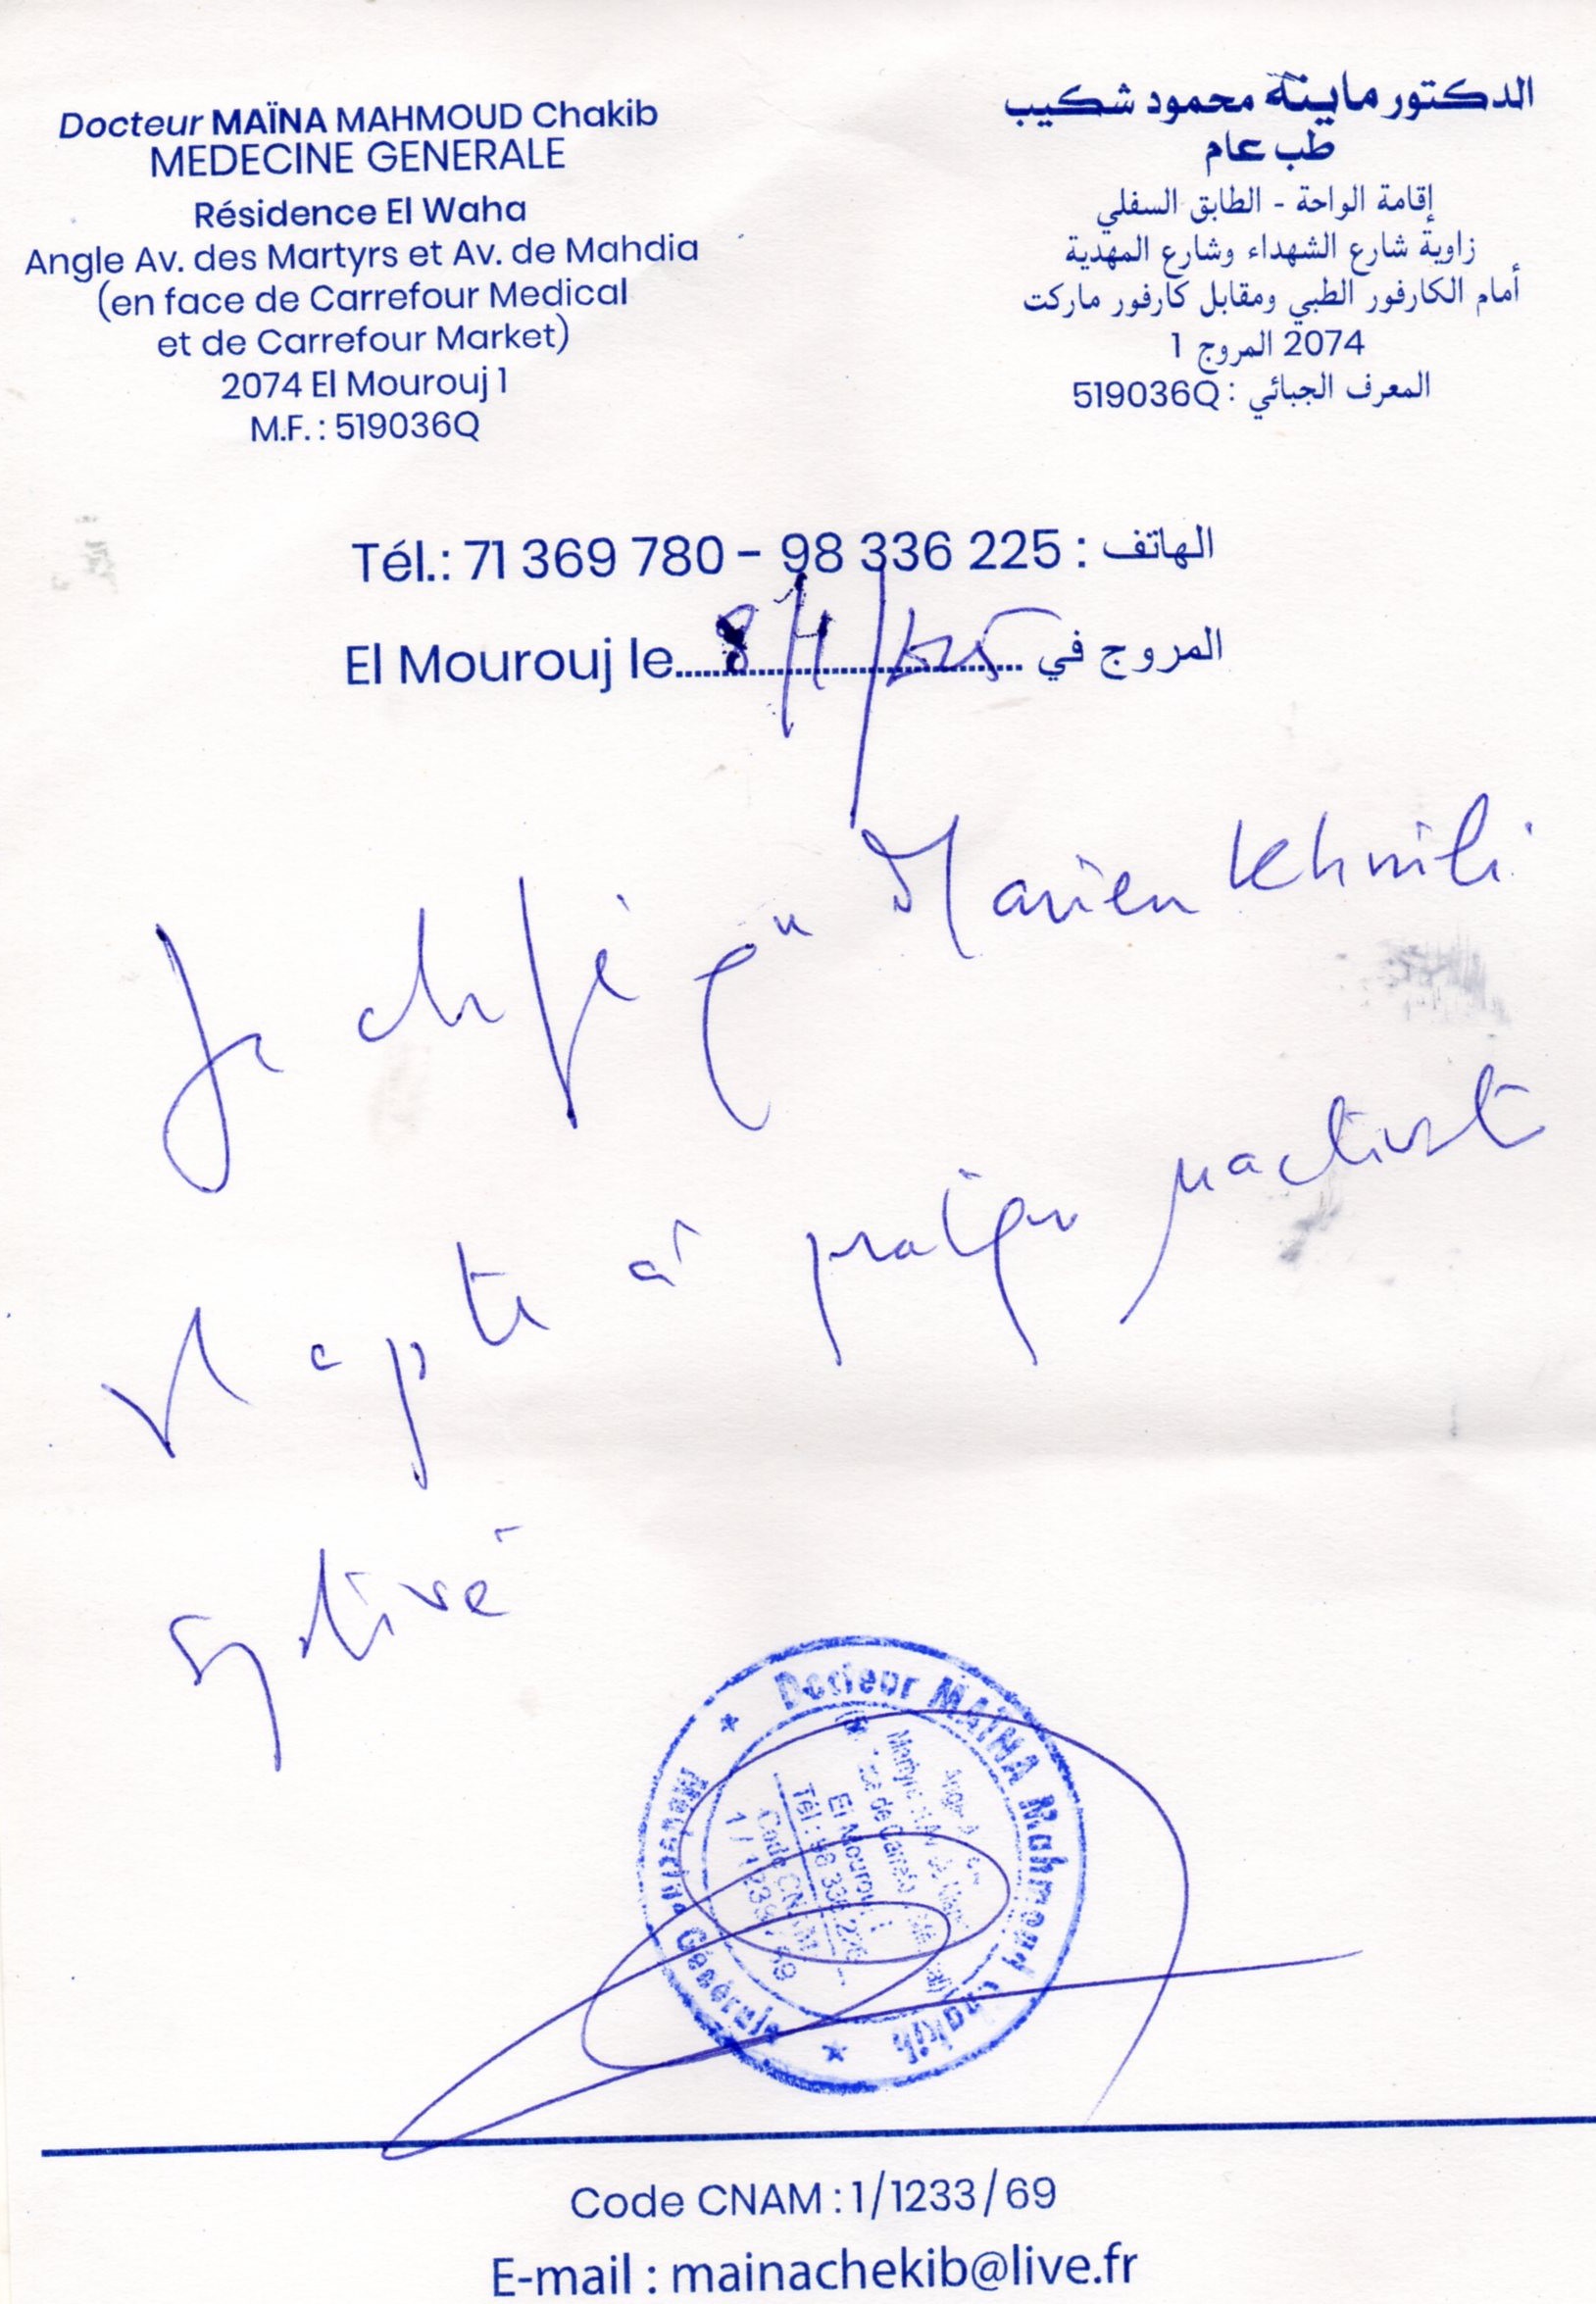 Docteur MAÏNA MAHMOUD Chakib
MEDECINE GENERALE
Résidence El Waha
Angle Av. des Martyrs et Av. de Mahdia
(en face de Carrefour Medical
et de Carrefour Market)
2074 El Mourouj 1
M.F. : 519036Q
الدكتور ماينة محمود شكيب
طب عام
إقامة الواحة - الطابق السفلي
زاوية شارع الشهداء وشارع المهدية
أمام الكارفور الطبي ومقابل كارفور ماركت
2074 المروج 1
المعرف الجبائي : 519036Q
Tél.: 71 369 780 - 98 336 225 : الهاتف
El Mourouj le 8/1/2025 المروج في
Je certifie que Mariem Khmili
est apte à pratiquer
sportive
Docteur MAÏNA Mahmoud Chakib
Médecine Générale
El Mourouj 1
Code CNAM
Code CNAM : 1/1233/69
E-mail : mainachekib@live.fr